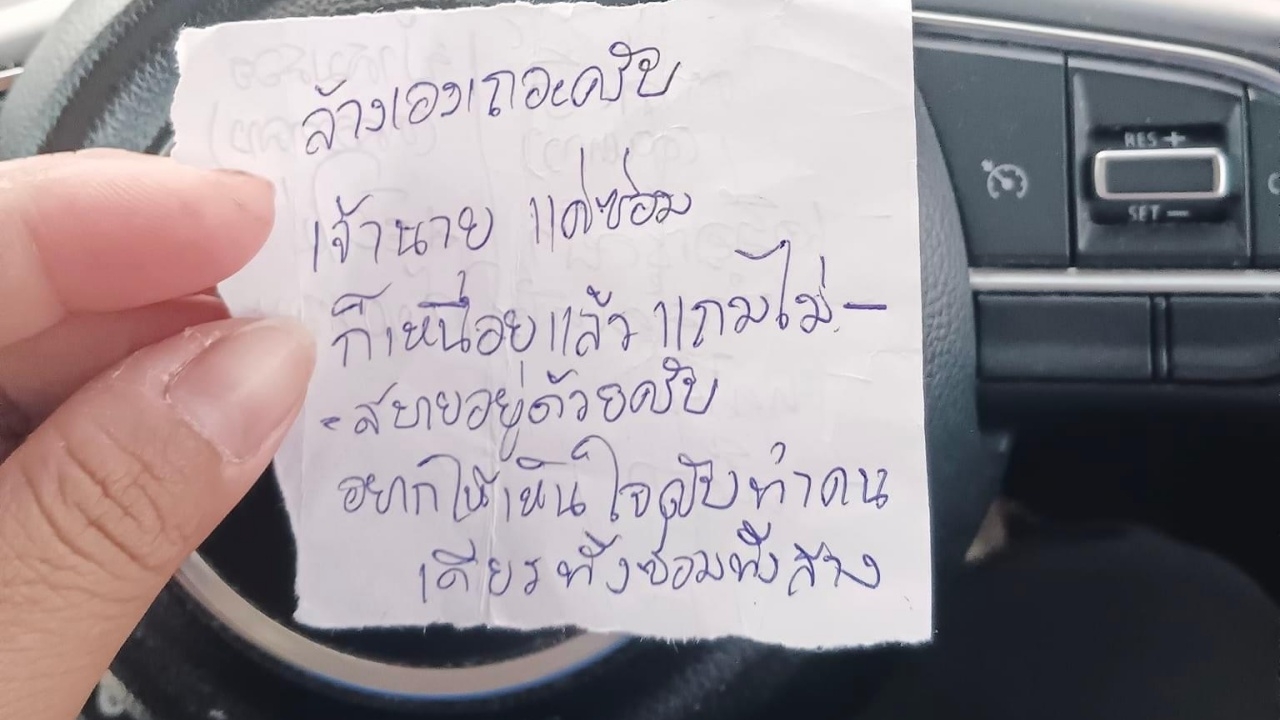 ล้างเองเถอะครับ
เจ้านาย แค่ซ่อม
ก็เหนื่อยแล้ว แถมไม่-
-สบายอยู่ด้วยครับ
อยากให้เห็นใจครับทำคน
เดียวทั้งซ่อมทั้งล้าง
RES +
SET −